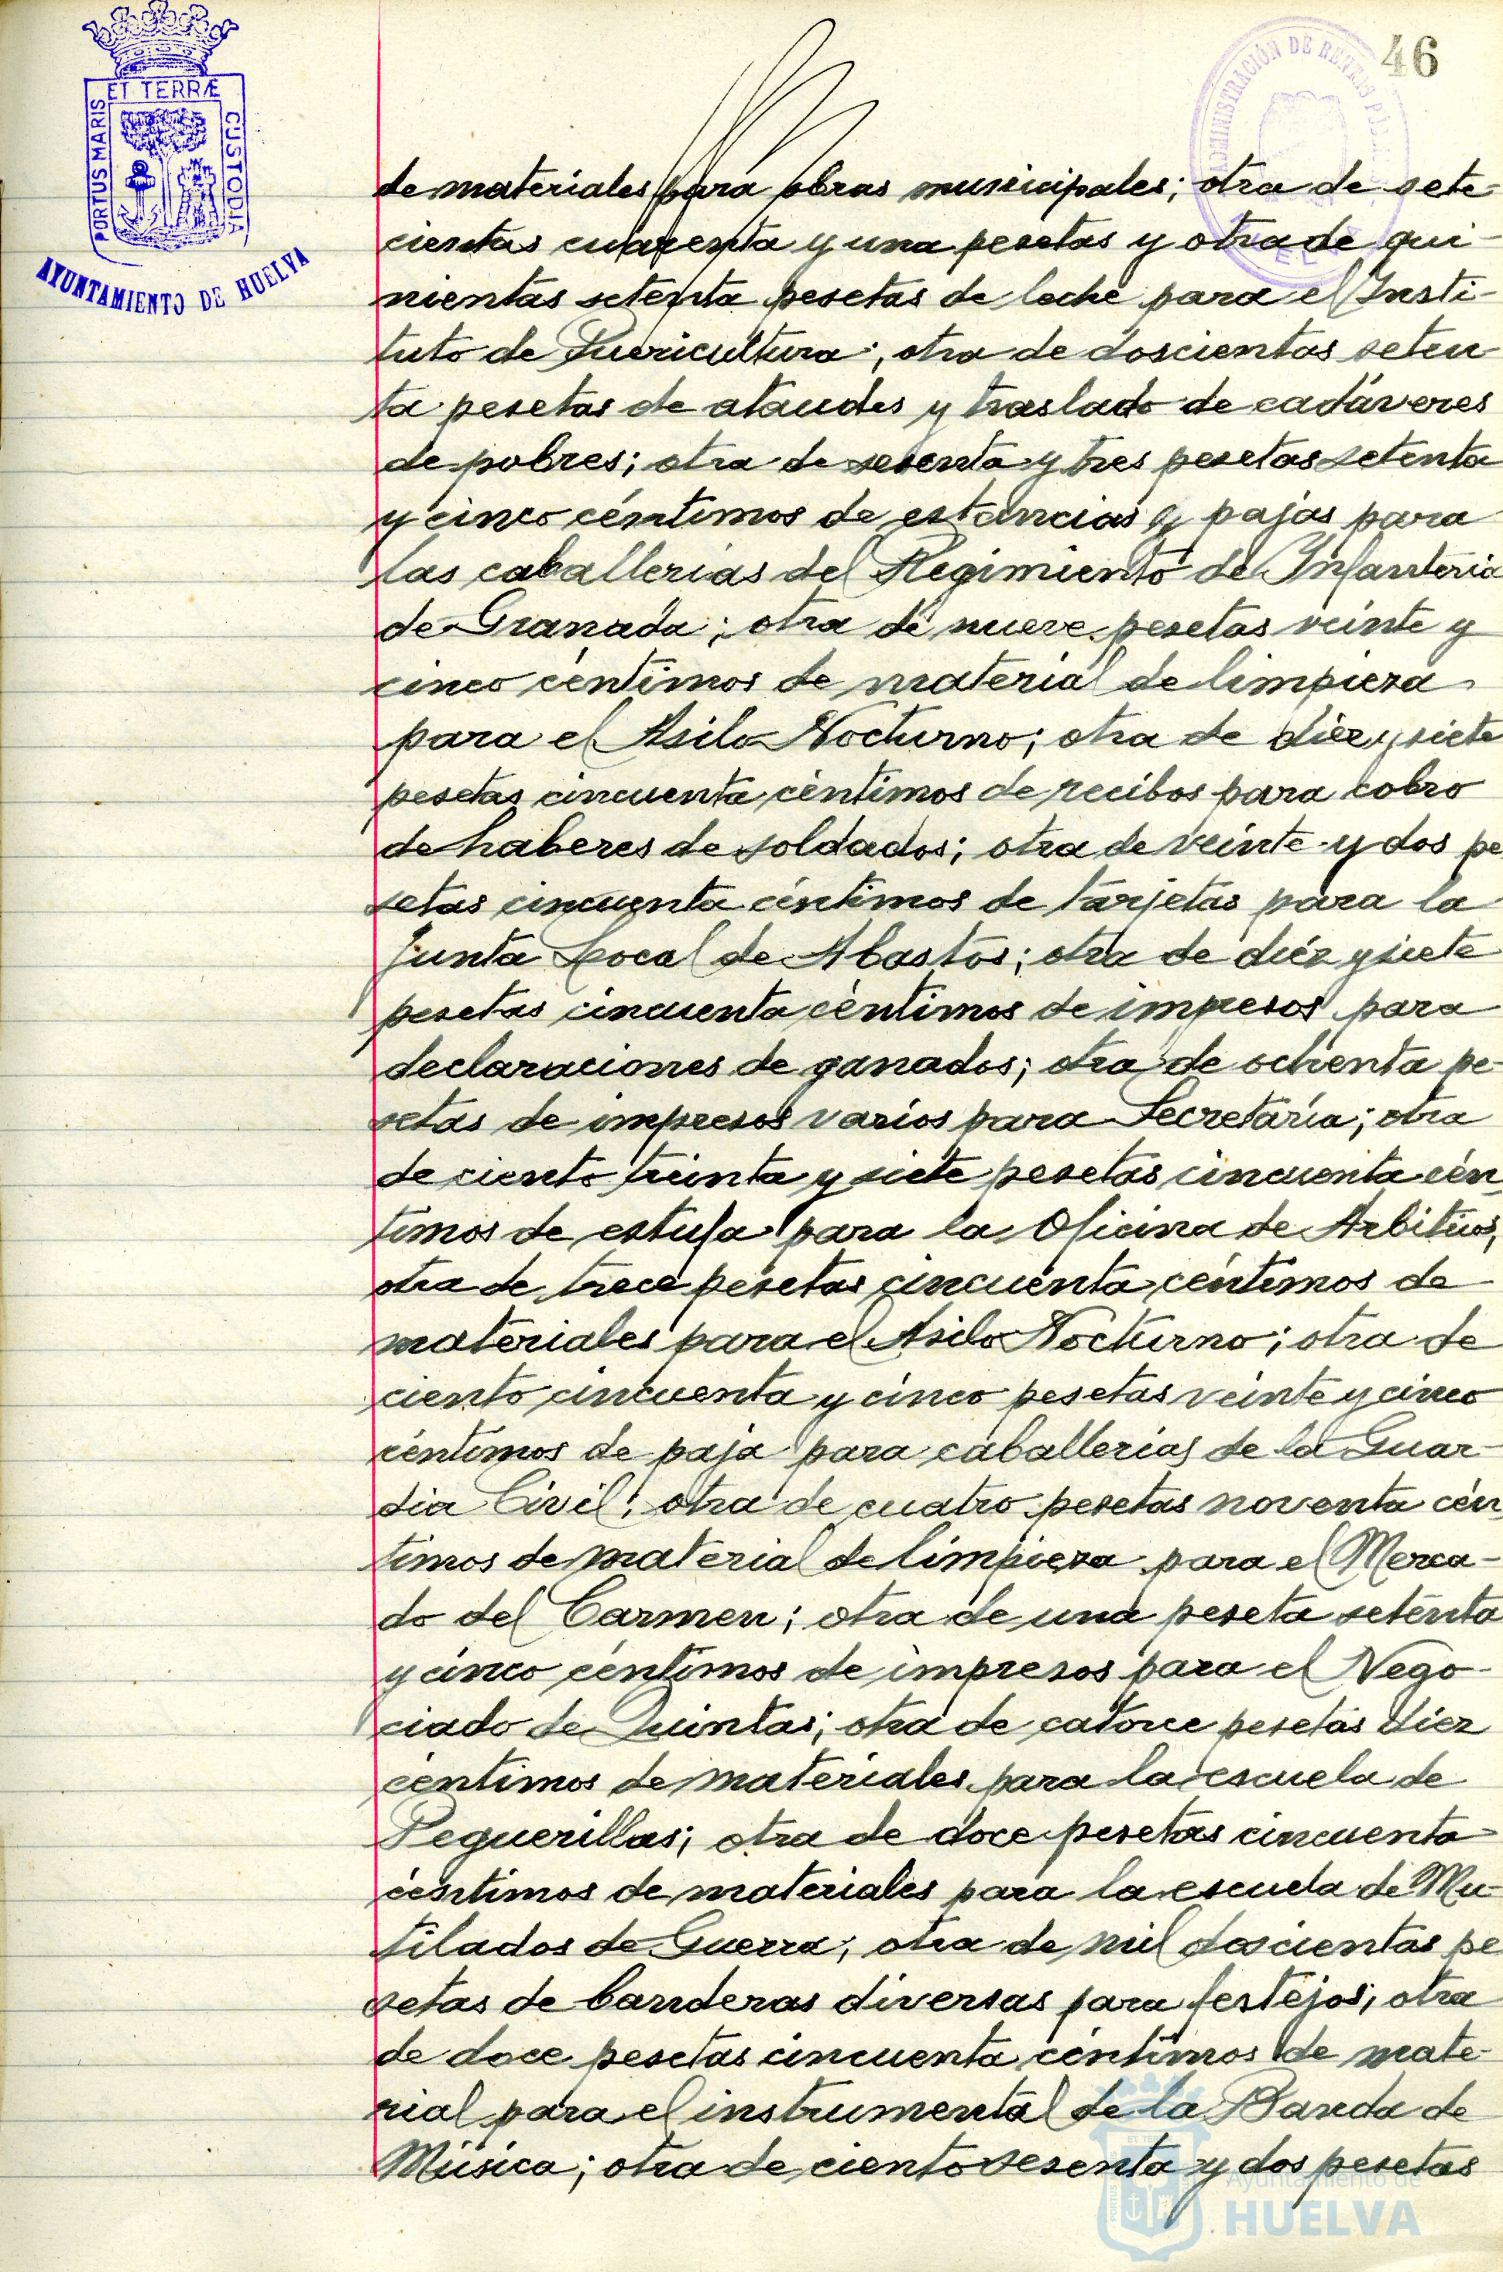 46
ET TERRÆ
PORTUS MARIS
CUSTODIA
AYUNTAMIENTO DE HUELVA
ADMINISTRACIÓN DE RENTAS
HUELVA
de materiales para obras municipales; otra de sete-
cientas cuarenta y una pesetas y otra de qui-
nientas setenta pesetas de leche para el Insti-
tuto de Puericultura; otra de doscientas seten
ta pesetas de ataudes y traslado de cadáveres
de pobres; otra de sesenta y tres pesetas setenta
y cinco céntimos de estancias y pajas para
las caballerias del Regimiento de Infanteria
de Granada; otra de nueve pesetas veinte y
cinco céntimos de material de limpieza
para el Asilo Nocturno; otra de diez y siete
pesetas cincuenta céntimos de recibos para cobro
de haberes de soldados; otra de veinte y dos pe
setas cincuenta céntimos de tarjetas para la
Junta Local de Abastos; otra de diéz y siete
pesetas cincuenta céntimos de impresos para
declaraciones de ganados; otra de ochenta pe-
setas de impresos varios para Secretaría; otra
de ciento treinta y siete pesetas cincuenta cén
timos de estufa para la Oficina de Arbitrios;
otra de trece pesetas cincuenta céntimos de
materiales para el Asilo Nocturno; otra de
ciento cincuenta y cinco pesetas veinte y cinco
céntimos de paja para caballerías de la Guar-
dia Civil; otra de cuatro pesetas noventa cén
timos de material de limpieza para el Merca-
do del Carmen; otra de una peseta setenta
y cinco céntimos de impresos para el Nego-
ciado de Quintas; otra de catorce pesetas diez
céntimos de materiales para la escuela de
Peguerillas; otra de doce pesetas cincuenta
céntimos de materiales para la escuela de Mu-
tilados de Guerra; otra de mil doscientas pe
setas de banderas diversas para festejos; otra
de doce pesetas cincuenta céntimos de mate-
rial para el instrumental de la Banda de
Música; otra de ciento sesenta y dos pesetas
Ayuntamiento de
HUELVA